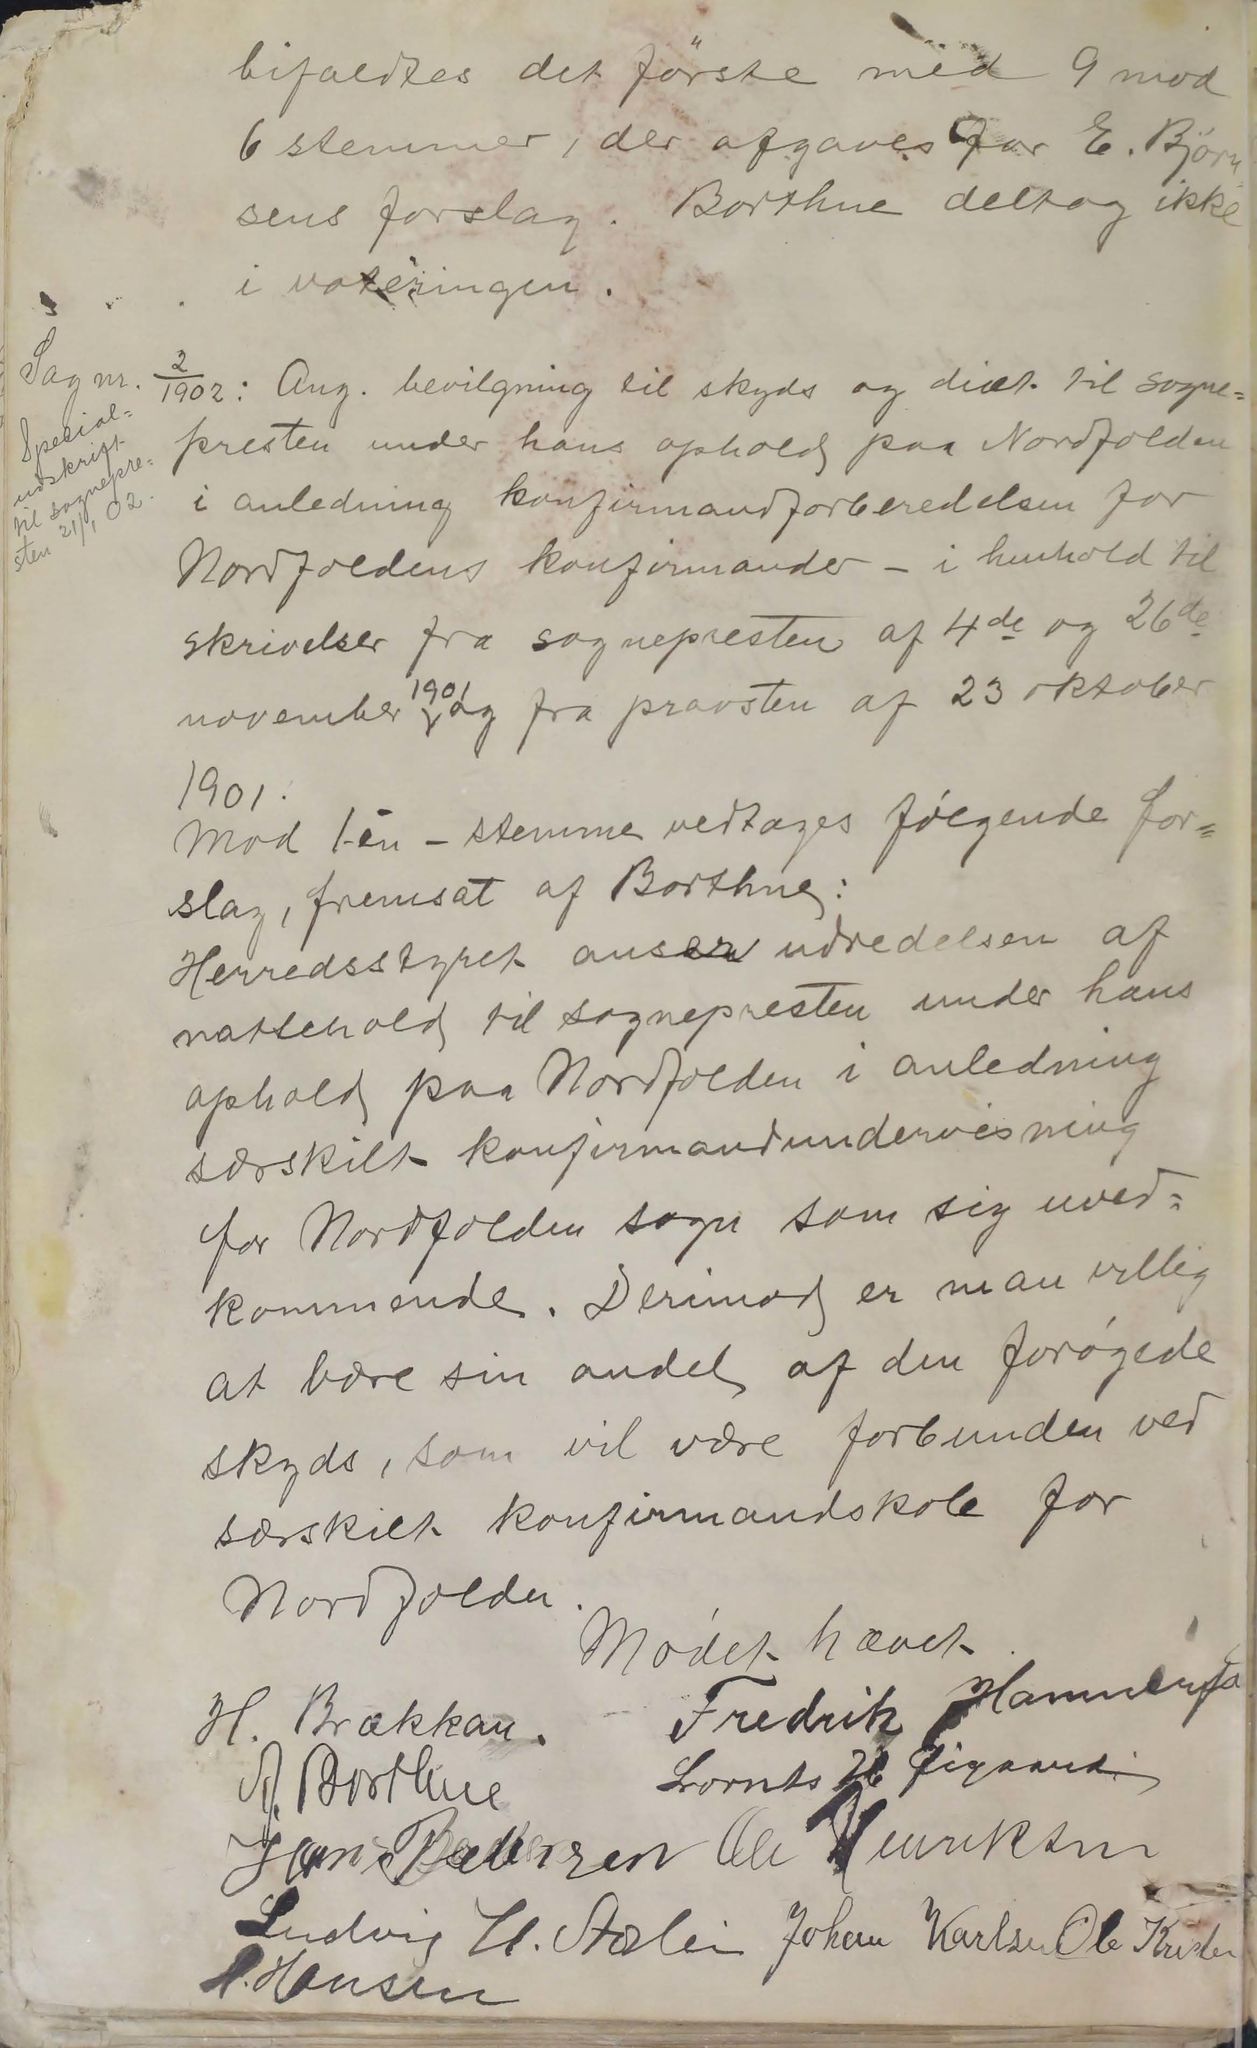 bifaldtes det første med 9 mod
6 stemmer, der afgaves for E. Bjørn
sens forslag. Borthne deltog ikke
i voteringen.
Sag nr. 2/1902: Ang. bevilgning til skyds og diæt til sogne=
presten under hans ophold paa Nordfolden
i anledning konfirmandforberedelsen for
Nordfoldens konfirmander - i henhold til
skrivelser fra sognepresten af 4de og 26de
november 1901 og fra provsten af 23 oktober
1901.
Special=
udskrift
til sognepre=
sten 21/1 02.
Mod 1-én - stemme vedtages følgende for=
slag, fremsat af Borthne:
Herredsstyret anser udredelsen af
nattehold til sognepresten under hans
ophold paa Nordfolden i anledning
særskilt konfirmandundervisning
for Nordfolden sogn som sig uved=
kommende. Derimod er man villig
at bære sin andel af den forøgede
skyds, som vil være forbunden ved
særskilt konfirmandskole for
Nordfolden.
Mødet hævet.
H. Brækkan. Fredrik Hammerfa
A. Borthne Lornts
Hans Pedersen Ole Henriksen
Ludvig H. Johan Karlsen Ole Krist
Hansen